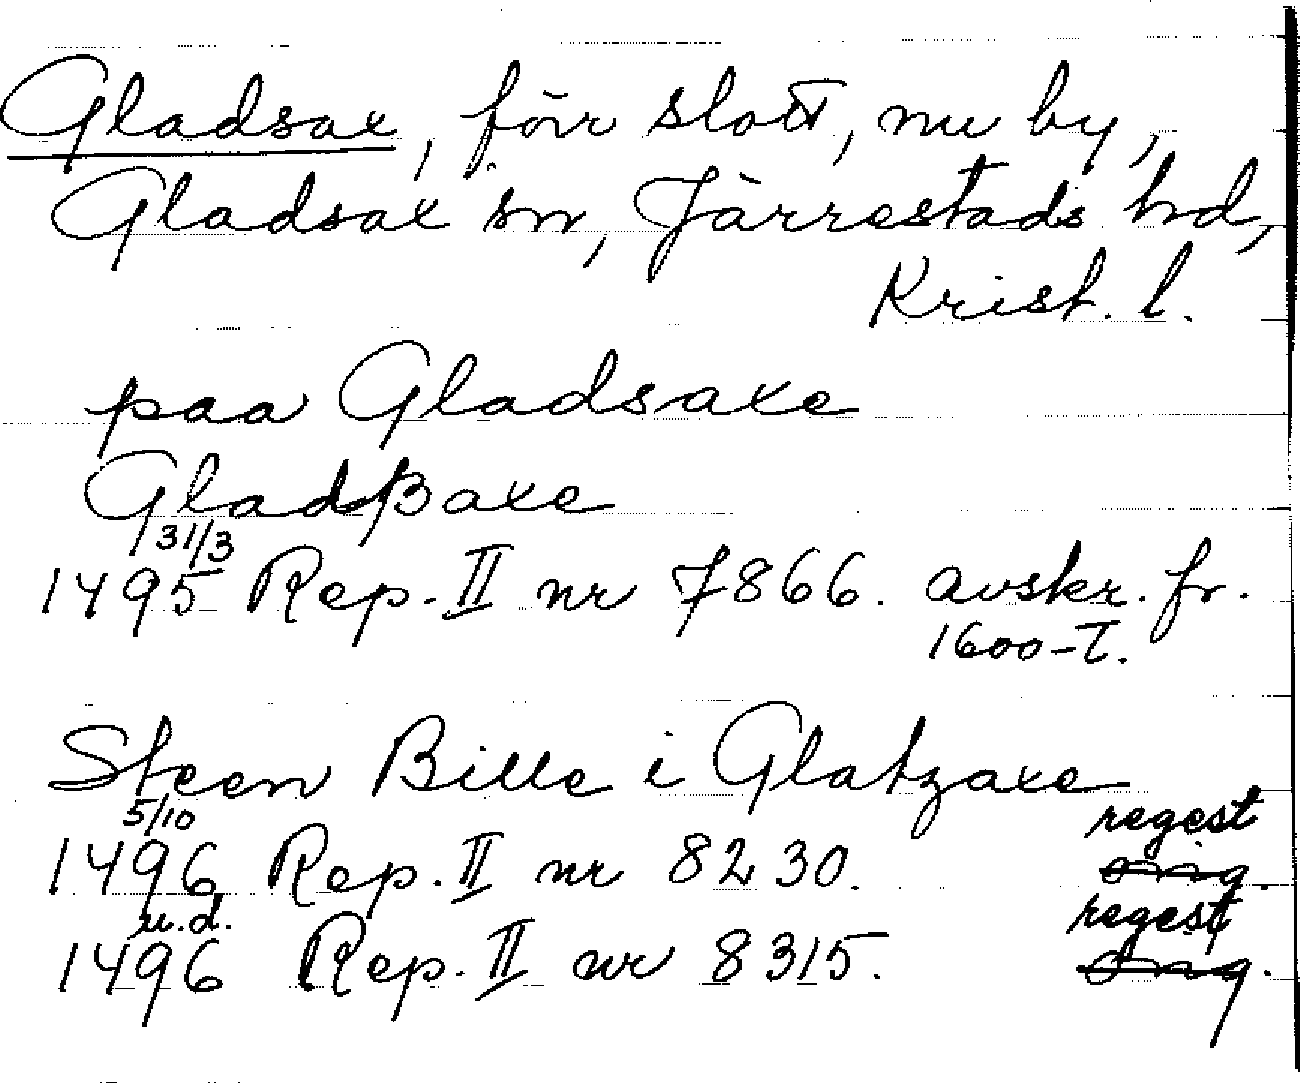 Gladsax, förr slott, nu by,
Gladsax sn, Järrestads hd,
Krist. l.
paa Gladsaxe
Gladßaxe
31/3
1495 Rep. II nr 7866. avskr. fr.
1600-T.
Steen Bille i Glatzaxe
5/10
regest
1496 Rep. II nr 8230. orig.
u.d.
regest
1496 Rep. II nr 8315. orig.